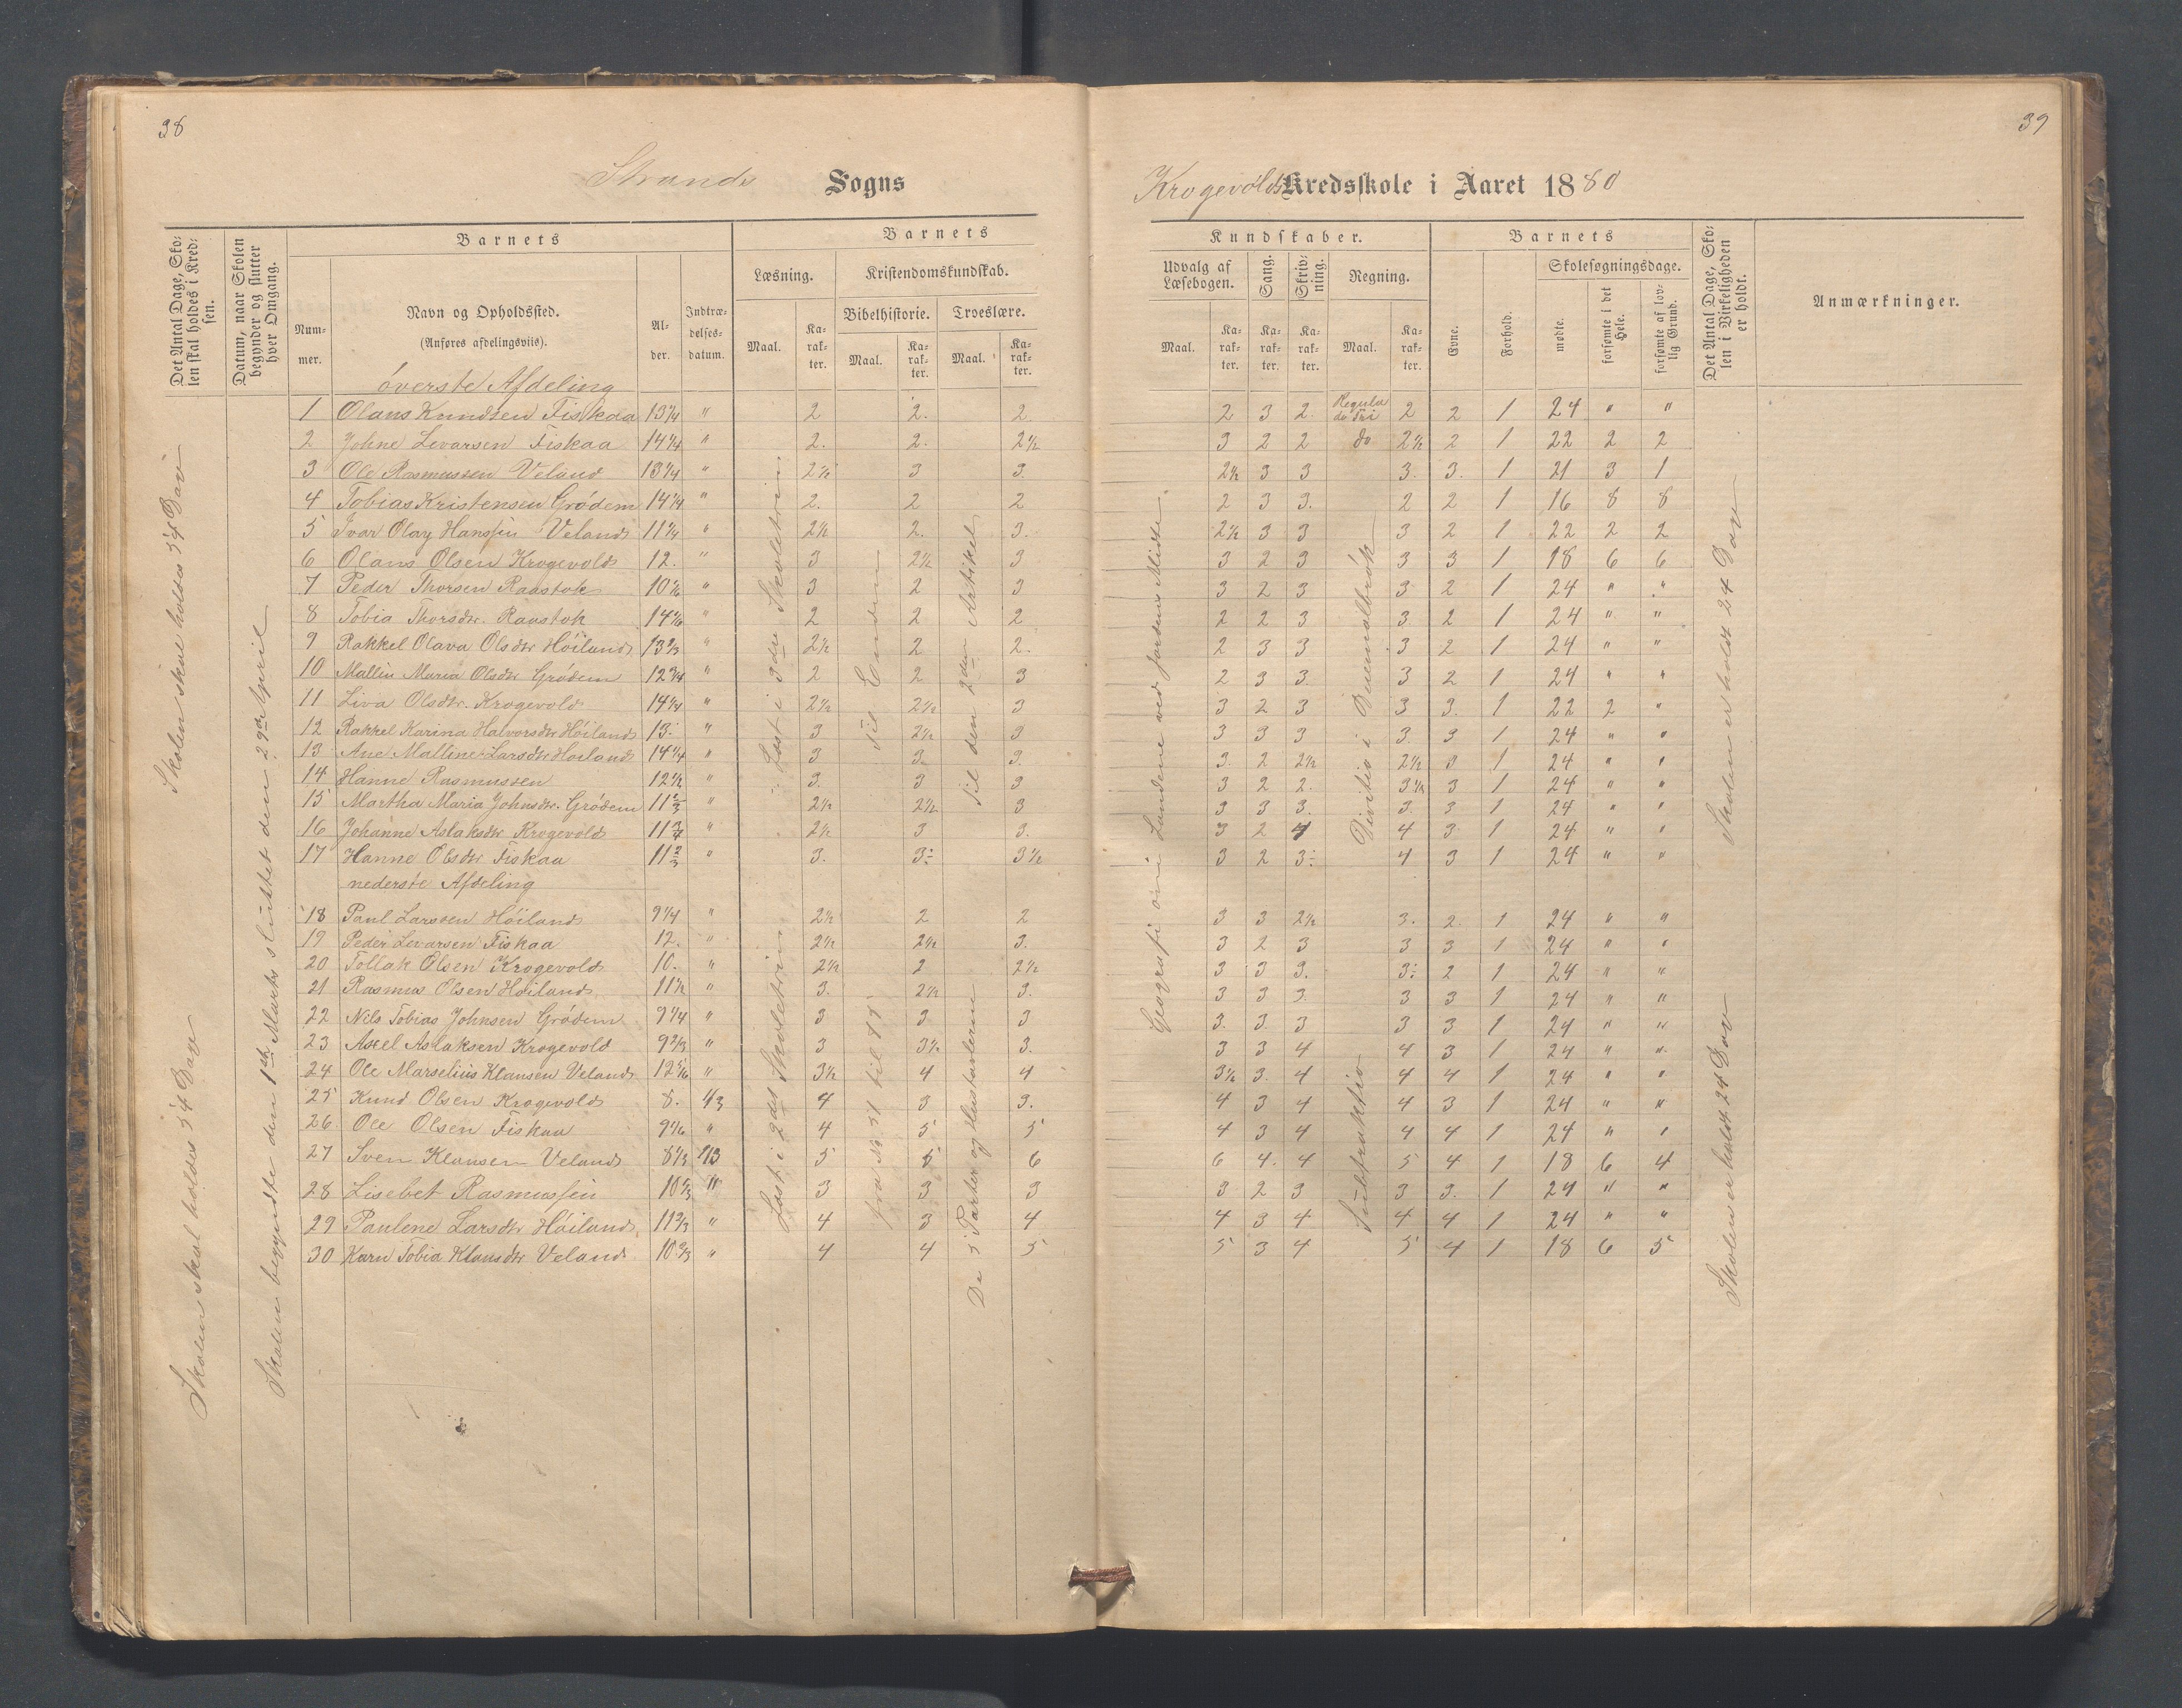 38
39
Strands Sogns
Krogevolds Kredsskole i Aaret 1880
Det Antal Dage, Skolen skal holdes i Kredsen.
Datum, naar Skolen begynder og slutter hver Omgang.
Barnets
Nummer.
Navn og Opholdssted.
(Anføres afdelingsviis).
Alder.
Indtrædelsesdatum.
Barnets
Kundskaber.
Læsning.
Kristendomskundskab.
Maal.
Karakter.
Bibelhistorie.
Maal.
Karakter.
Troeslære.
Maal.
Karakter.
Udvalg af Læsebogen.
Maal.
Karakter.
Sang.
Karakter.
Skrivning.
Karakter.
Regning.
Maal.
Karakter.
Barnets
Evne.
Forhold.
Skolesøgningsdage.
mødte.
forsømte i det Hele.
forsømte af lovlig Grund.
Det Antal Dage, Skolen i Virkeligheden er holdt.
Anmærkninger.
Skolen skal holdes 54 Dage
Skolen skal holdes 54 Dage
Skolen begyndte den 1ste Marts sluttet den 29de April
øverste Afdeling
1 Olans Knudsen Fiskaa 13 1/4 " 2 2. 2. 2 3 2. Regula de Tri 2 2 1 24 " "
2 Johne Levarsen Fiskaa 14 1/4 " 2. 2. 2 1/2 3 2 2 do 2 1/2 2 1 22 2 2
3 Ole Rasmussen Veland 13 1/4 " 2 1/2 3 3. 2 1/2 3 3 3. 3. 1 21 3 1
4 Tobias Kristensen Grødem 14 1/4 " 2. 2 2 2 3 3. 2 2 1 16 8 8
5 Ivar Olay Hanssen Veland 11 1/4 " 2 1/2 2. 3. 2 1/2 3 3 3 2 1 22 2 2
6 Olans Olsen Krogevold 12. " 3 2 1/2 3 3 2 3 3 3 1 18 6 6
7 Peder Thorsen Raustok 10 1/2 " 3 2 3 3 2 3 3 2 1 24 " "
8 Tobia Thorsdtr. Raustok 14 1/6 " 2 2 2 2 2 3 3. 2 1 24 " "
9 Rakkel Olava Olsdtr Høiland 13 2/3 " 2 1/2 2 2. 2 3 3 3 2 1 24 " "
10 Mallin Maria Olsdtr Grødem 12 3/4 " 2 2 3 2 3 3 3 2 1 24 " "
11 Liva Olsdtr. Krogevold 14 1/4 " 2 1/2 2 1/2 3 3 2 3 3 3. 1 22 2 "
12 Rakkel Karina Halvorsdtr Høiland 13. " 3 2 1/2 3 3 3 3 3. 3 1 24 " "
13 Ane Malline Larsdtr Høiland 14 1/4 " 3 3. 3. 3. 2 2 1/2 2 1/2 3 1 24 " "
14 Hanne Rasmussen 12 1/2 " 3. 3 3 3 2 2. 3 1/2 3 1 24 " "
15 Martha Maria Johnsdtr. Grødem 11 2/3 " 2 1/2 2 1/2 3 3 3 3. 3. 3 1 24 " "
16 Johanne Aslaksdtr Krogevold 11 3/4 " 2 1/2 3 3. 3 2 4 4 3 1 24 " "
17 Hanne Olsdtr Fiskaa 11 2/3 " 3. 3÷ 3 1/2 3 2 3÷ 4 3 1 24 " "
nederste Afdeling
18 Paul Larssen Høiland 9 1/4 " 2 1/2 2 2 3 3 2 1/2 3. 2. 1 24 " "
19 Peder Levarsen Fiskaa 12. " 2 1/2 2 1/2 3. 3 2 3 3 3 1 24 " "
20 Tollak Olsen Krogevold 10. " 2 1/2 2 2 1/2 3 3 3. 3÷ 2 1 24 " "
21 Rasmus Olsen Høiland 11 1/2 " 3. 2 1/2 3. 3 3 3. 3 3 1 24 " "
22 Nils Tobias Johnsen Grødem 9 1/4 " 3 3 3 3. 3. 3 3 3 1 24 " "
23 Axel Aslaksen Krogevold 9 2/3 " 3 3 1/2 3. 3 3 4 4 3 1 24 " "
24 Ole Marselius Klausen Veland 12 5/6 " 3 1/2 4 4 3 1/2 3. 4 4 4 1 24 " "
25 Knud Olsen Krogevold 8. 1/3 4 3 3. 4 3 4 4 3 1 24 " "
26 Ole Olsen Fiskaa 9 1/6 " 4 5 5 4 3 4 4 4 1 24 " "
27 Sven Klausen Veland 8 1/3 1/3 5 5 6 6 4. 4 5 4 1 18 6 4
28 Lisebet Rasmussen 10 2/3 " 3 3 3 3 2 3 3 3. 1 24 " "
29 Paulene Larsdtr Høiland 11 2/3 " 4 3 4 4 3 4 4 4 1 24 " "
30 Karn Tobia Klausdtr Veland 10 2/3 " 4 4 5 5 3 4 5 4 1 18 6 5
Læst i 3die Skoletrin
til Enden
Til den 2den Artikel
Læst i 2det Skoletrin
fra No 51 til 77
De 5 Parter og Hustavlerne
Geografi om Landene ved Jordens Midte.
Divitio i Decimalbrøk
Subtraktio
Skolen er holdt 24 Dage
Skolen er holdt 24 Dage